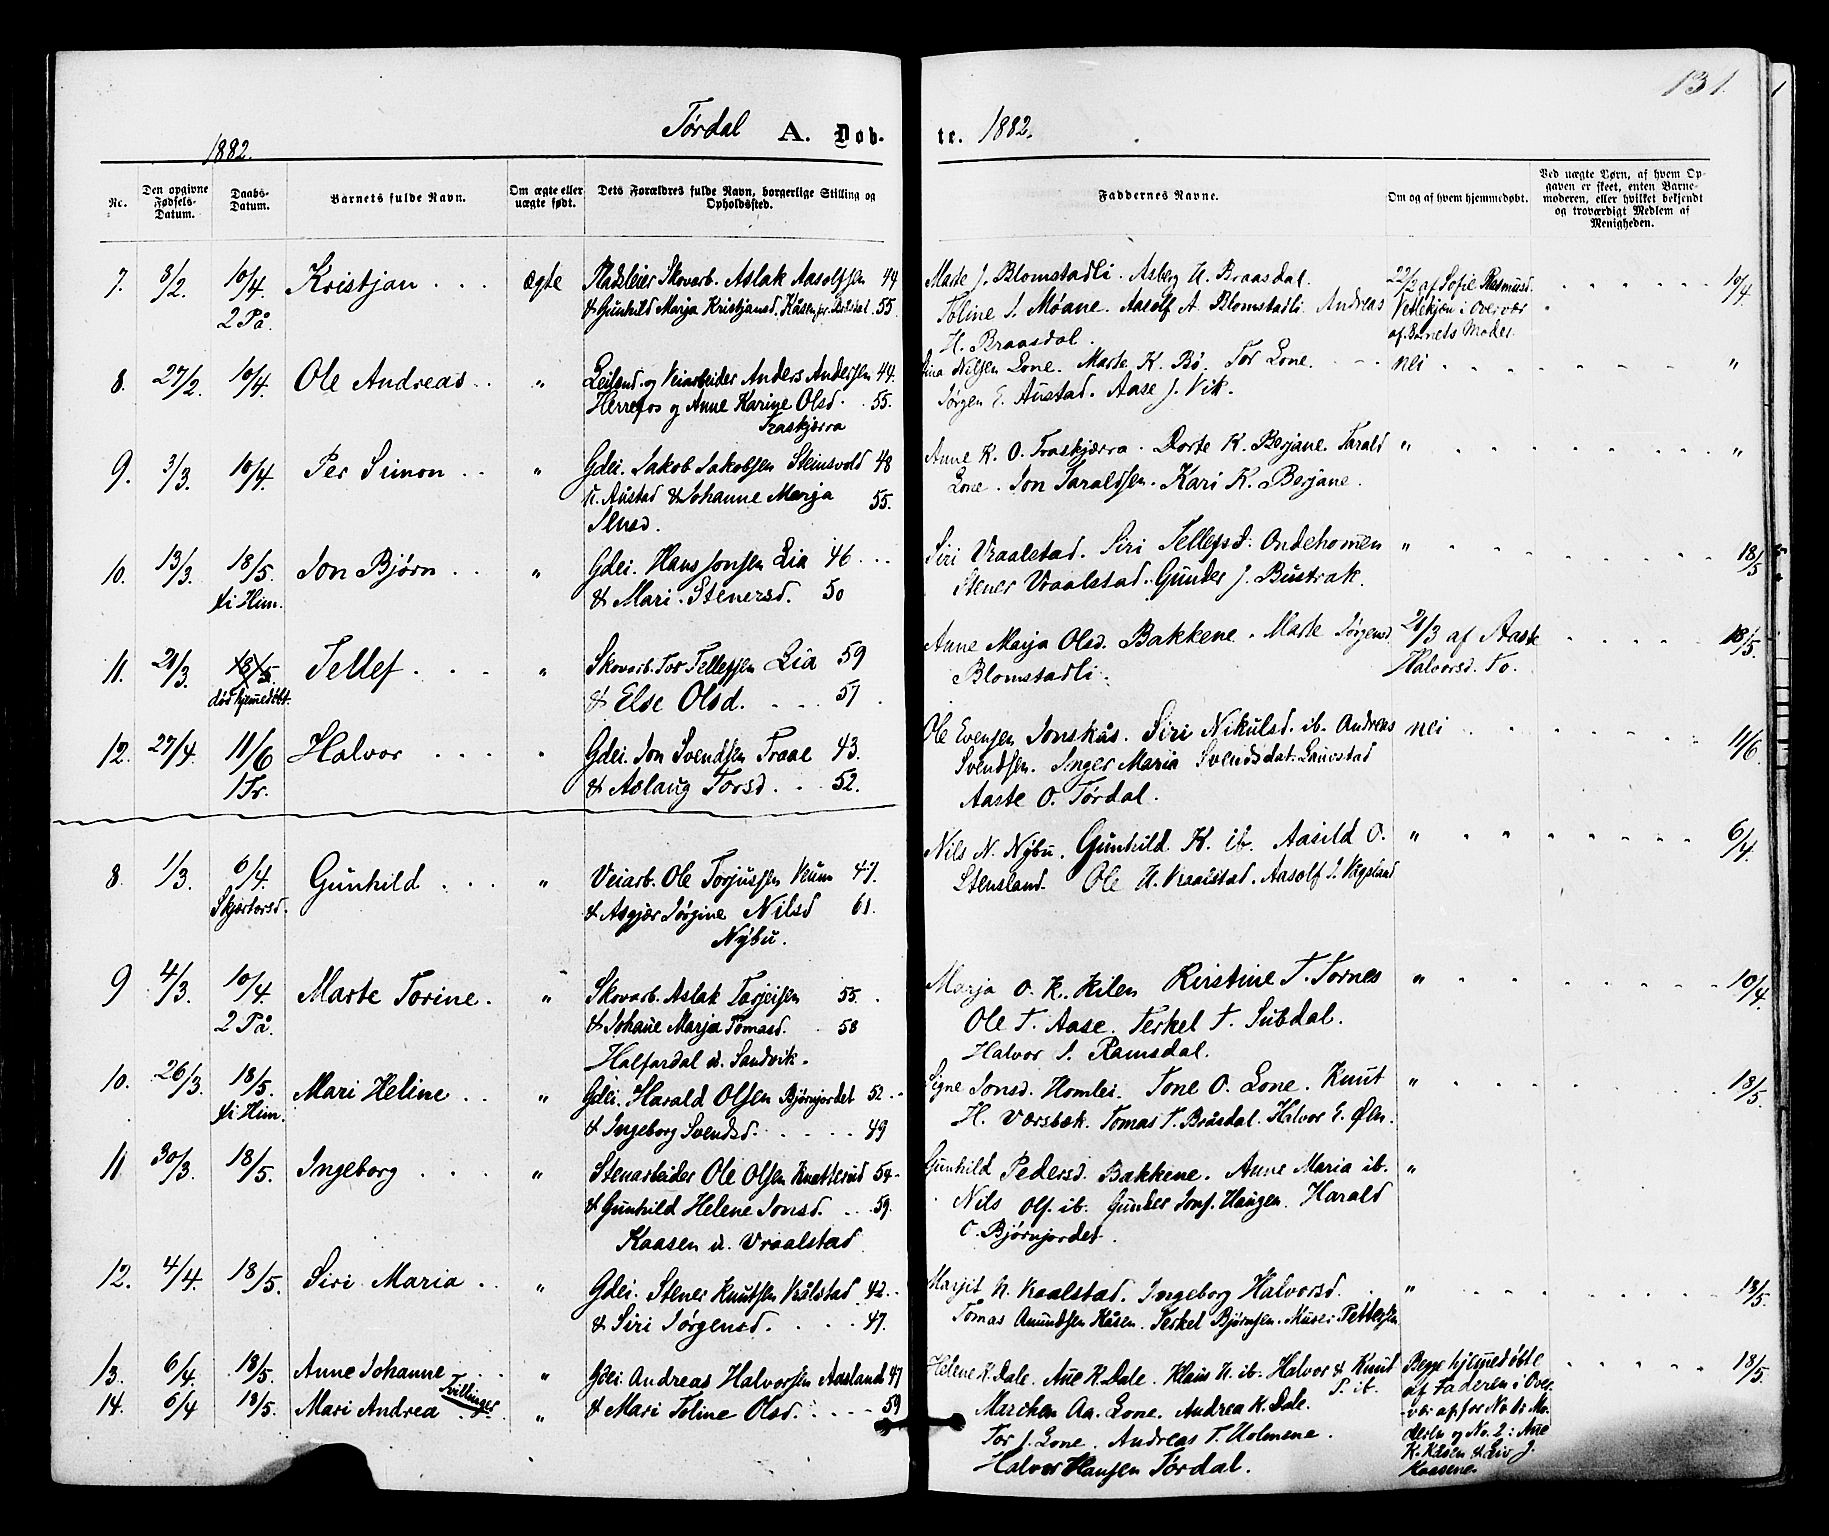 131.
Tørdal A. Døb- te. 1882.
1882.
Nr.
Den opgivne Fødsels-Datum.
Daabs-Datum.
Barnets fulde Navn.
Om ægte eller uægte født.
Dets Forældres fulde Navn, borgerlige Stilling og Opholdssted.
Faddernes Navne.
Om og af hvem hjemmedøbt.
Ved uægte Børn, af hvem Opgaven er skeet, enten Barnemoderen, eller hvilket bekjendt og troværdigt Medlem af Menigheden.
7. 8/2. 10/4. Kristjan . . . ægte Pladseier Skovarb. Aslak Aasolfsen 44
2 På. & Gunhild Marja Kristjansd. Kåsen 55.
Marte J. Blomstadli. Asberg H. Braasdal. 22/2 af Sofie Rasmusd. 10/4
Toline S. Moane. Aasolf A. Blomstadli. Andreas Vedlekjøn i Overvær
H. Braasdal. af Barnets Moder.
8. 27/2. 10/4. Ole Andreas . . " Leilend. og Veiarbeider Anders Andersen 44.
Herrefos og Anne Karine Olsd. 55.
Fraskjærra
Nilsen Lone. Marte K. Bø. Tor Lone. nei "
Jørgen E. Austad. Aase J. Vik.
9. 3/3. 10/4. Per Simon . . " Gdei. Jakob Jakobsen Steinsvold 48
n. Austad & Johanne Marja 55.
Anne K. O. Fraskjærra. Dorte K. Berjane. Tarald " "
Lone. Jon Taraldsen. Kari K. Berjane.
10. 13/3. 18/5. Jon Bjørn . . " Gdei. Hans Jonsen Lia 46
Kr. Him. & Mari Stenersd. 50
Siri Vraalstad. Siri Tellefsd. Ondehomen " 18/5
Stener Vraalstad. Gunder J. Bustrak.
11. 21/3. 18/5. Tellef . . . " Skovarb. Tor Tellefsen Lia 59
død hjemedøbt. & Else Olsd. 57
Anne Marja Olsd. Bakkene. Marte Jørgensd. 21/3 af Aaste 18/5.
Blomstadli. Halvorsd. To.
12. 27/4. 11/6 Halvor . . . " Gdei. Jon Svendsen Traae 43.
1 Tr. & Aslaug Torsd. 52.
Ole Evensen Jonskås. Siri Nikulsd. ib. Andreas nei 11/6.
Svendsen. Inger Maria Svendsdat. Lauvstad
Aaste O. Tørdal.
8. 1/3. 6/4. Gunhild . . . " Veiarb. Ole Torjussen Veum 47.
Skjærtorsd. & Asgjær Jørgine Nilsd 61.
Nybu.
Nils N. Nybu. Gunhild K. ib. Aasild O. " 6/4
Stensland. Ole H. Vraalstad. Aasolf J. Vågsland
9 4/3. 10/4. Marte Torine. " Skovarb. Aslak Tarjeisen 55.
2 På. & Johane Marja Tomasd. 58
Halfardal u. Sandvik.
Marja O. K. Kilen Kirstine T. Tornes " 10/4.
Ole T. Aase. Terkel T. Subdal.
Halvor S. Ramsdal.
10. 26/3. 18/5. Mari Heline . . " Gdei. Harald Olsen Bjørnjordet 52
Kr. Him. & Ingeborg Svendsd. 49
Signe Jonsd. Homlei. Tone O. Lone. Knut " 18/5.
H. Værsbæk. Tomas T. Bråsdal. Halvor E. Øen.
11 30/3. 18/5. Ingeborg . . . " Stenarbeider Ole Olsen Knatterud 54
& Gunhild Helene Jonsd. 59.
Kaasen u. Vraalstad
Gunhild Pedersd. Bakkene. Anne Maria ib. "
Nils Ols. ib. Gunder Jons. Haugen. Harald
O. Bjørnjordet.
12. 4/4. 18/5. Siri Maria . . " Gdei. Stener Knutsen Vrålstad 42
& Siri Jørgensd. 47.
Margit N. Vraalstad. Ingeborg Halvorsd. " 18/5.
Tomas Amundsen Kåsen. Terkel Bjørnsen. Pettersen
13. 6/4. 18/5. Anne Johanne . . " Gdei. Andreas Halvorsen Aasland 47
14. 6/4 18/5. Mari Andrea Tvillinger " & Mari Toline Olsd. 59
Helene K. Dale. Ane K. Dale. Klaus K. ib. Halvor & Knut Begge hjemedøbte 18/5.
P. ib. af Faderen i Over-
Marchen Aa. Lone. Andrea K. Dale. -vær af for No 1: Mo-
Tor J. Lone. Andreas T. Holmene. deren og No. 2: Ane
Halvor Hansen Tørdal. K. Kåsen & Liv J.
Kaasene.